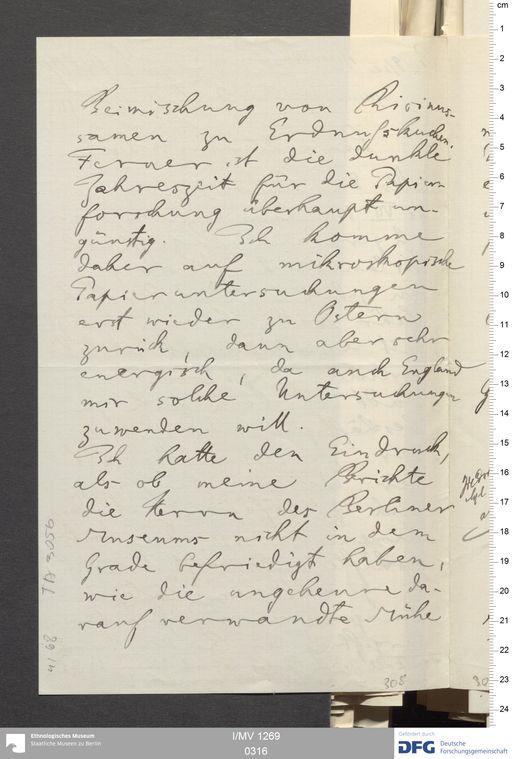 Beimischung von Rhicinus-
samen zu Erdnußkuchen.
Ferner ist die dunkle
Jahreszeit für die Papier
forschung überhaupt un-
günstig. Ich komme
daher auf mikroskopische
Papieruntersuchungen
erst wieder zu Ostern
zurück, dann aber sehr
energisch, da auch England
mir solche Untersuchungen
zuwenden will.
Ich hatte den Eindruck,
als ob meine Berichte
die Herrn des Berliner
Museums nicht in dem
Grade befriedigt haben,
wie die ungeheure da-
rauf verwandte Mühe
TA 3056
305
cm
1
2
3
4
5
6
7
8
9
10
11
12
13
14
15
16
17
18
19
20
21
22
23
24
Ethnologisches Museum
Staatliche Museen zu Berlin
I/MV 1269
0316
Gefördert durch
DFG Deutsche
Forschungsgemeinschaft